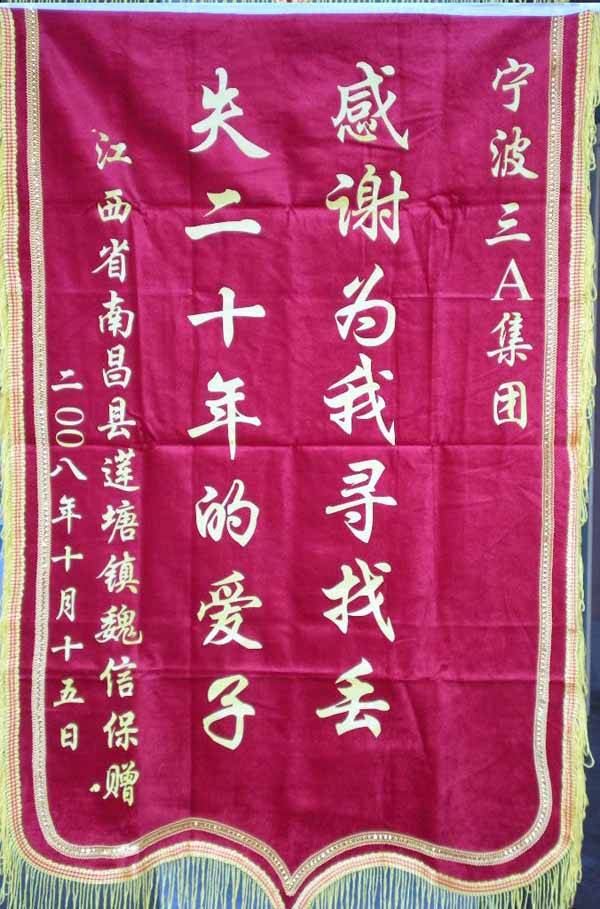 宁波三A集团
感谢为我寻找丢
失二十年的爱子
江西省南昌县莲塘镇魏信保赠
二00八年十月十五日